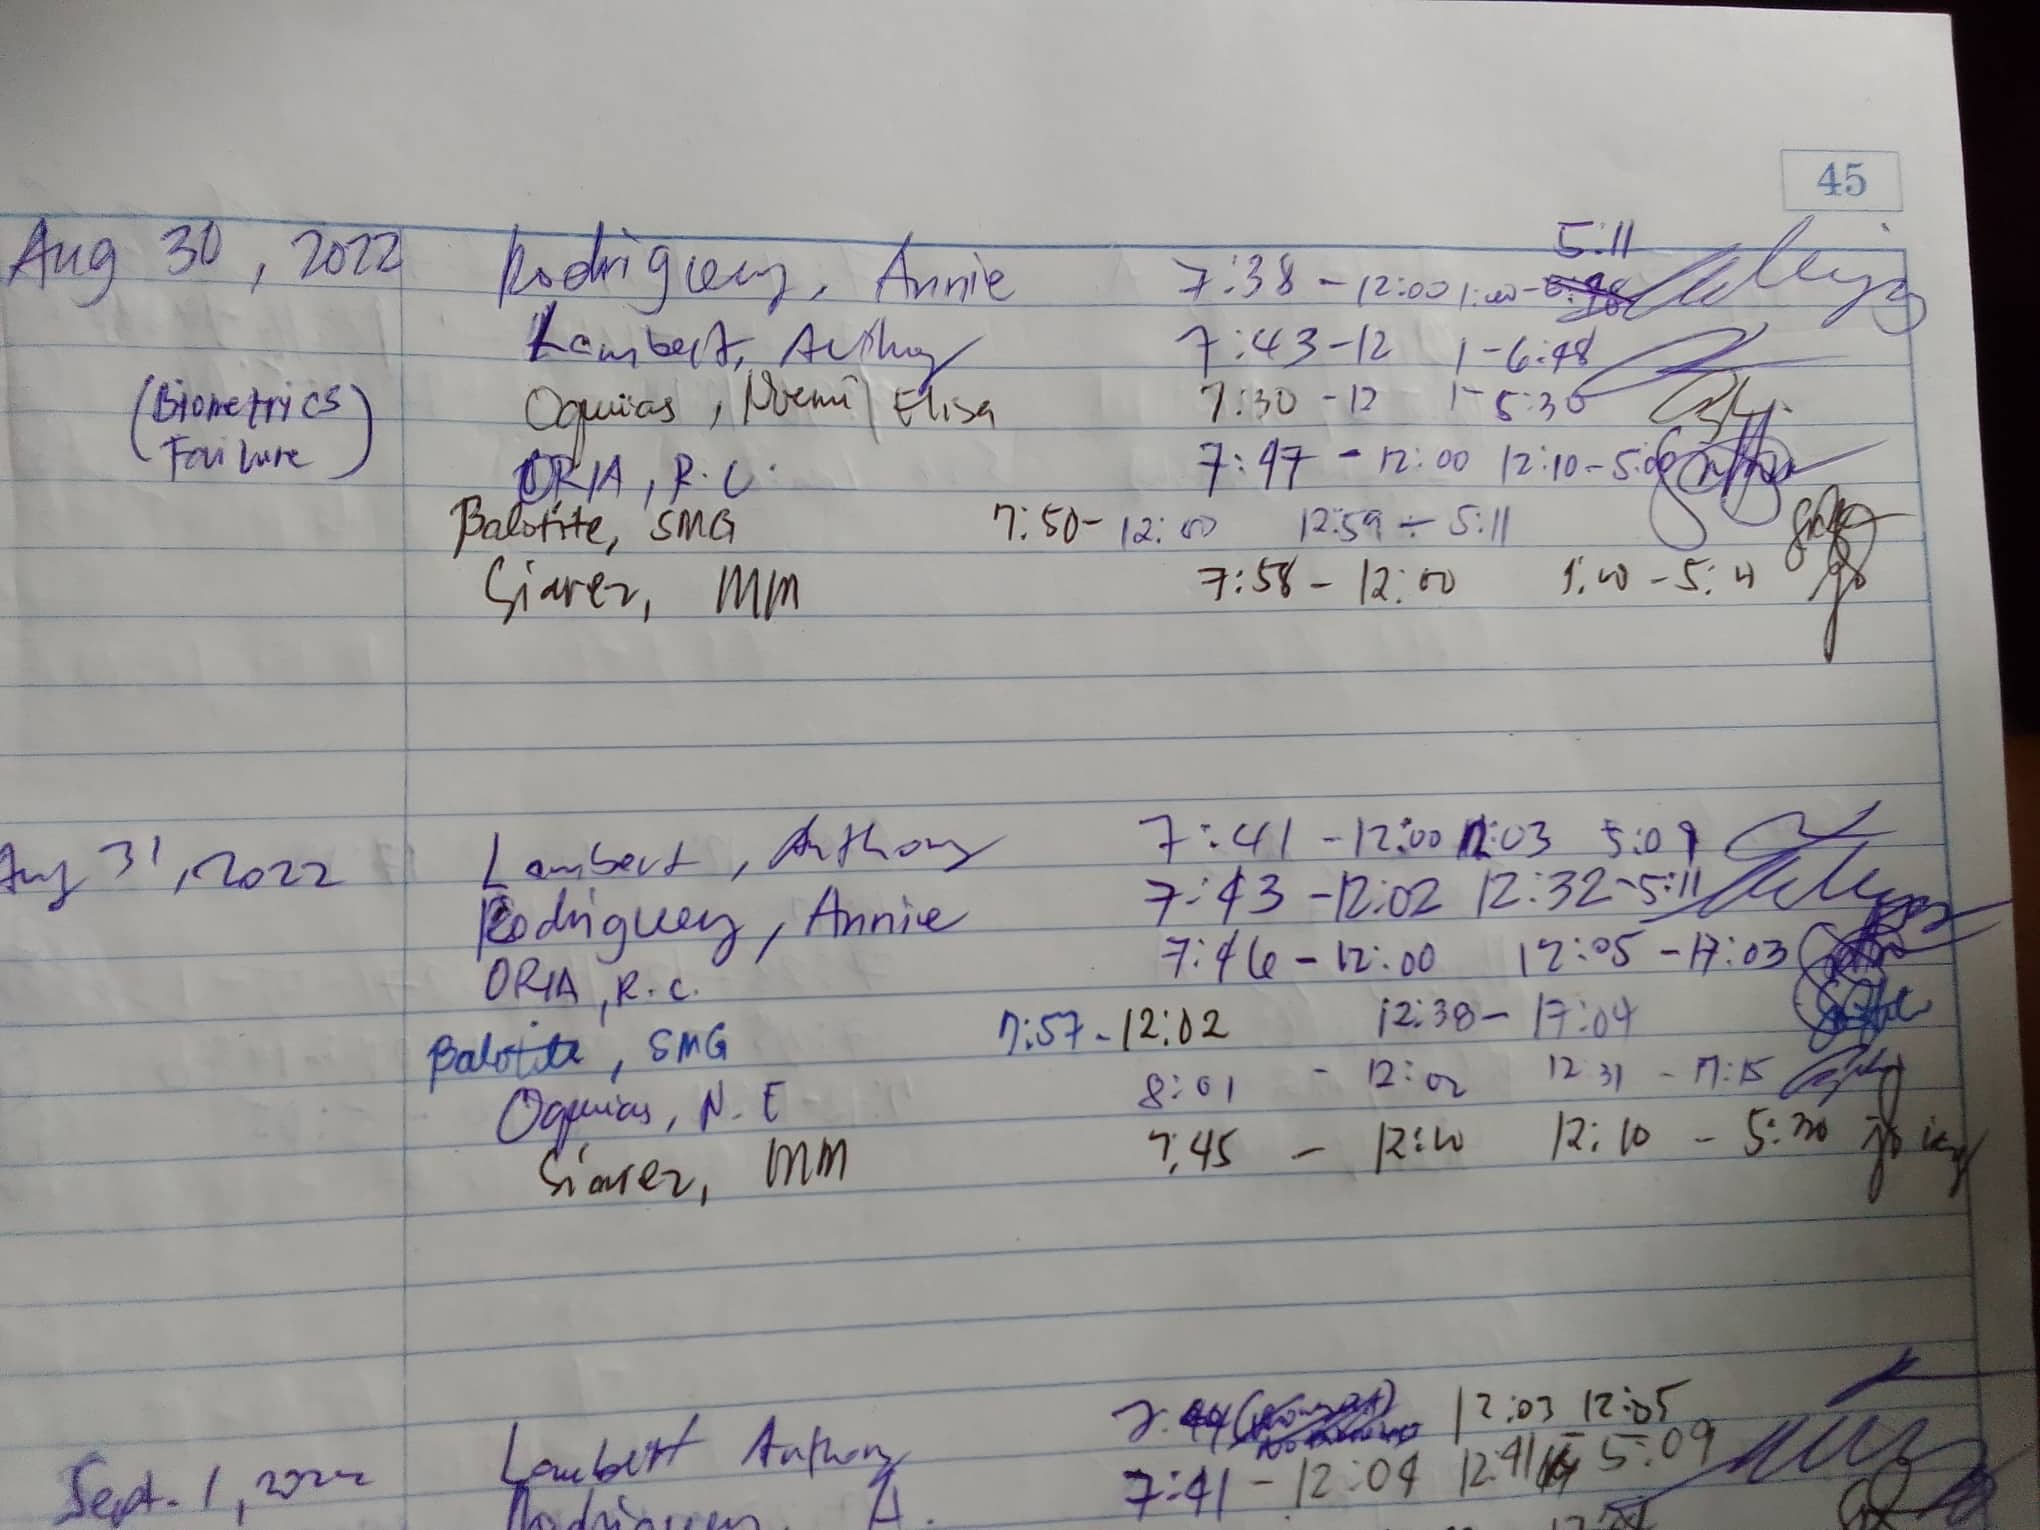 45
5:11
Aug 30, 2022 Rodriguez, Annie 7:38 - 12:00 1:00 -
Lambert, Anthony 7:43-12 1-6:48
Oquias, Noemi Elisa 7:30 - 12 1-5:30
(Biometrics Failure)
ORIA, R.C. 7:47 - 12:00 12:10 - 5:06
Balotite, SMG 7:50 - 12:00 12:59 - 5:11
Siarez, MM 7:58 - 12:00 1:00 - 5:11
Aug 31, 2022 Lambert, Anthony 7:41 - 12:00 12:03 5:09
Rodriguez, Annie 7:43 - 12:02 12:32 - 5:11
ORIA, R.C. 7:46 - 12:00 12:05 - 17:03
Balotite, SMG 7:57 - 12:02 12:38 - 17:04
Oquias, N.E 8:01 - 12:02 12:31 - 17:15
Siarez, MM 7:45 - 12:10 12:10 - 5:30
Sept. 1, 2022 Lambert Anthony 7:44 12:03 12:05
Rodriguez, A. 7:41 - 12:04 12:41 5:09